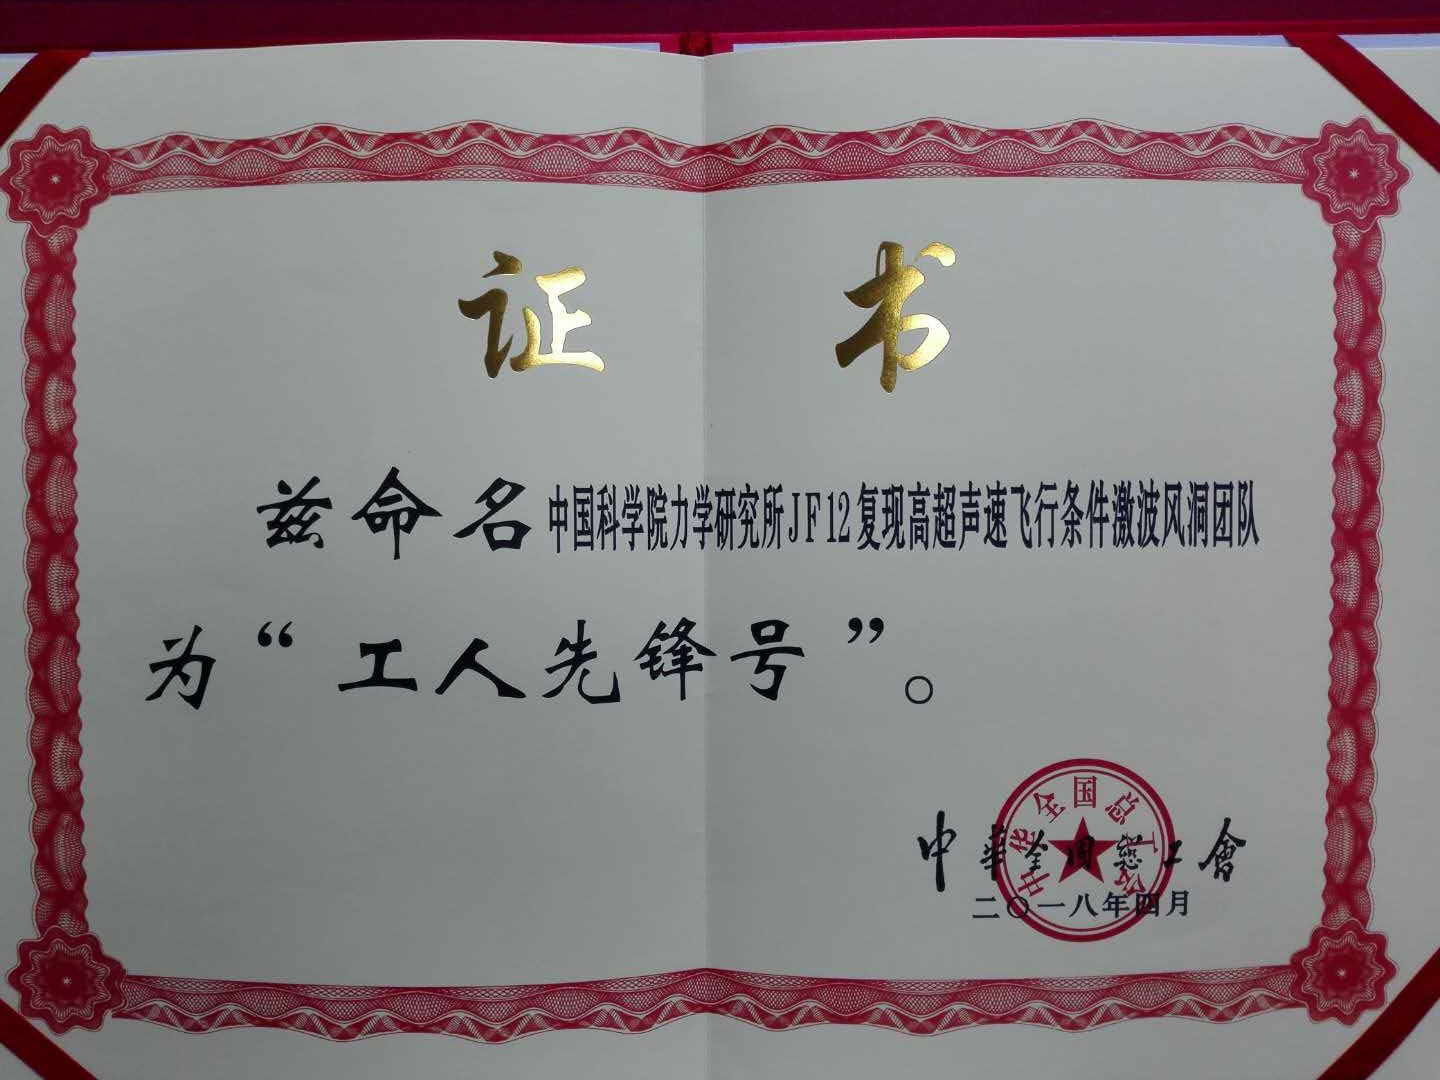 证书
兹命名中国科学院力学研究所JF12复现高超声速飞行条件激波风洞团队
为“工人先锋号”。
中華全国總工會
二〇一八年四月
中华全国总工会